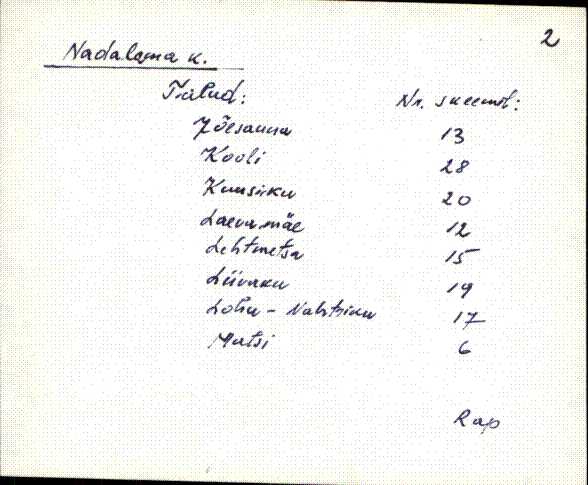 2
Nadalama k.
Talud: Nr. skeemil:
Jõesauna 13
Kooli 28
Kuusiku 20
Laevamäe 12
Lehtmetsa 15
Liivaku 19
Lohu - Nahtriku 17
Matsi 6
Rap